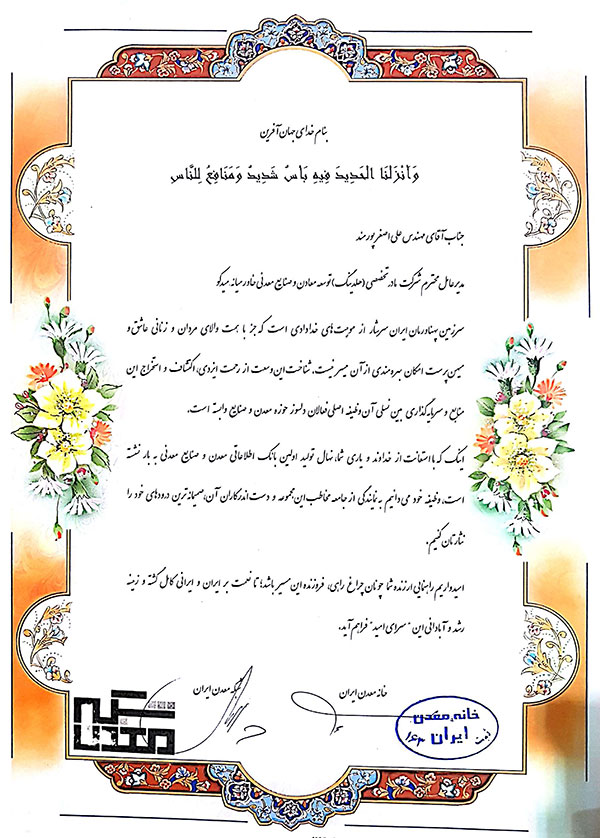 بنام خدای جهان آفرین
وَأَنْزَلْنَا الحَدِيدَ فِيهِ بَأسٌ شَدِيدٌ وَمَنَافِعُ للنَّاسِ
جناب آقای مهندس علی اصغر پورمند
مدیر عامل محترم شرکت مادر تخصصی (هلدینگ) توسعه معادن و صنایع معدنی خاورمیانه میدکو
سرزمین پهناورمان ایران سرشار از موهبت‌های خدادادی است که جز با همت والای مردان و زنانی عاشق و
میهن‌پرست امکان بهره‌مندی از آن میسر نیست. شناخت این وسعت از رحمت ایزدی، اکتشاف و استخراج این
منابع و سرمایه‌گذاری بین نسلی آن وظیفه اصلی فعالان دلسوز حوزه معدن و صنایع وابسته است.
اینک که با استعانت از خداوند و یاری شما، نهال تولید اولین بانک اطلاعاتی معدن و صنایع معدنی به بار نشسته
است، وظیفه خود می‌دانیم به نمایندگی از جامعه مخاطب این مجموعه و دست‌اندرکاران آن، صمیمانه‌ترین درودهای خود را
نثارتان کنیم.
امیدواریم راهنمایی ارزنده شما چونان چراغ راهی، فروزنده این مسیر باشد؛ تا نعمت بر ایران و ایرانی کامل گشته و زمینه
رشد و آبادانی این "سرای امید" فراهم آید.
خانه معدن ایران
شبکه معدن ایران
خانه معدن
ایران